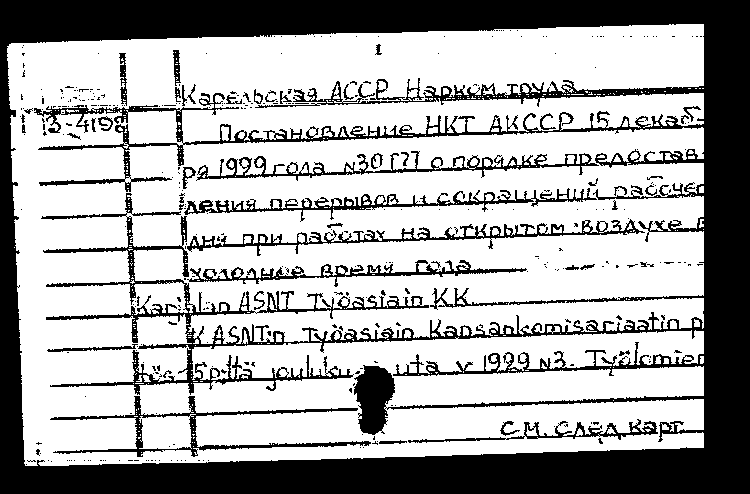 1
Карельская АССР Нарком труда
3-4198
Постановление НКТ АКССР 15 декаб-
ря 1999 года №30 [?] о порядке предостав
ления перерывов и сокращений рабочего
дня при работах на открытом воздухе в
холодное время года
Karjalan ASNT Työasiain KK
KASNT:n Työasiain Kansankomisariaatin p
tös 15 p:ttä joulukuuta v 1929 №3. Työlomien
См. след. карт.